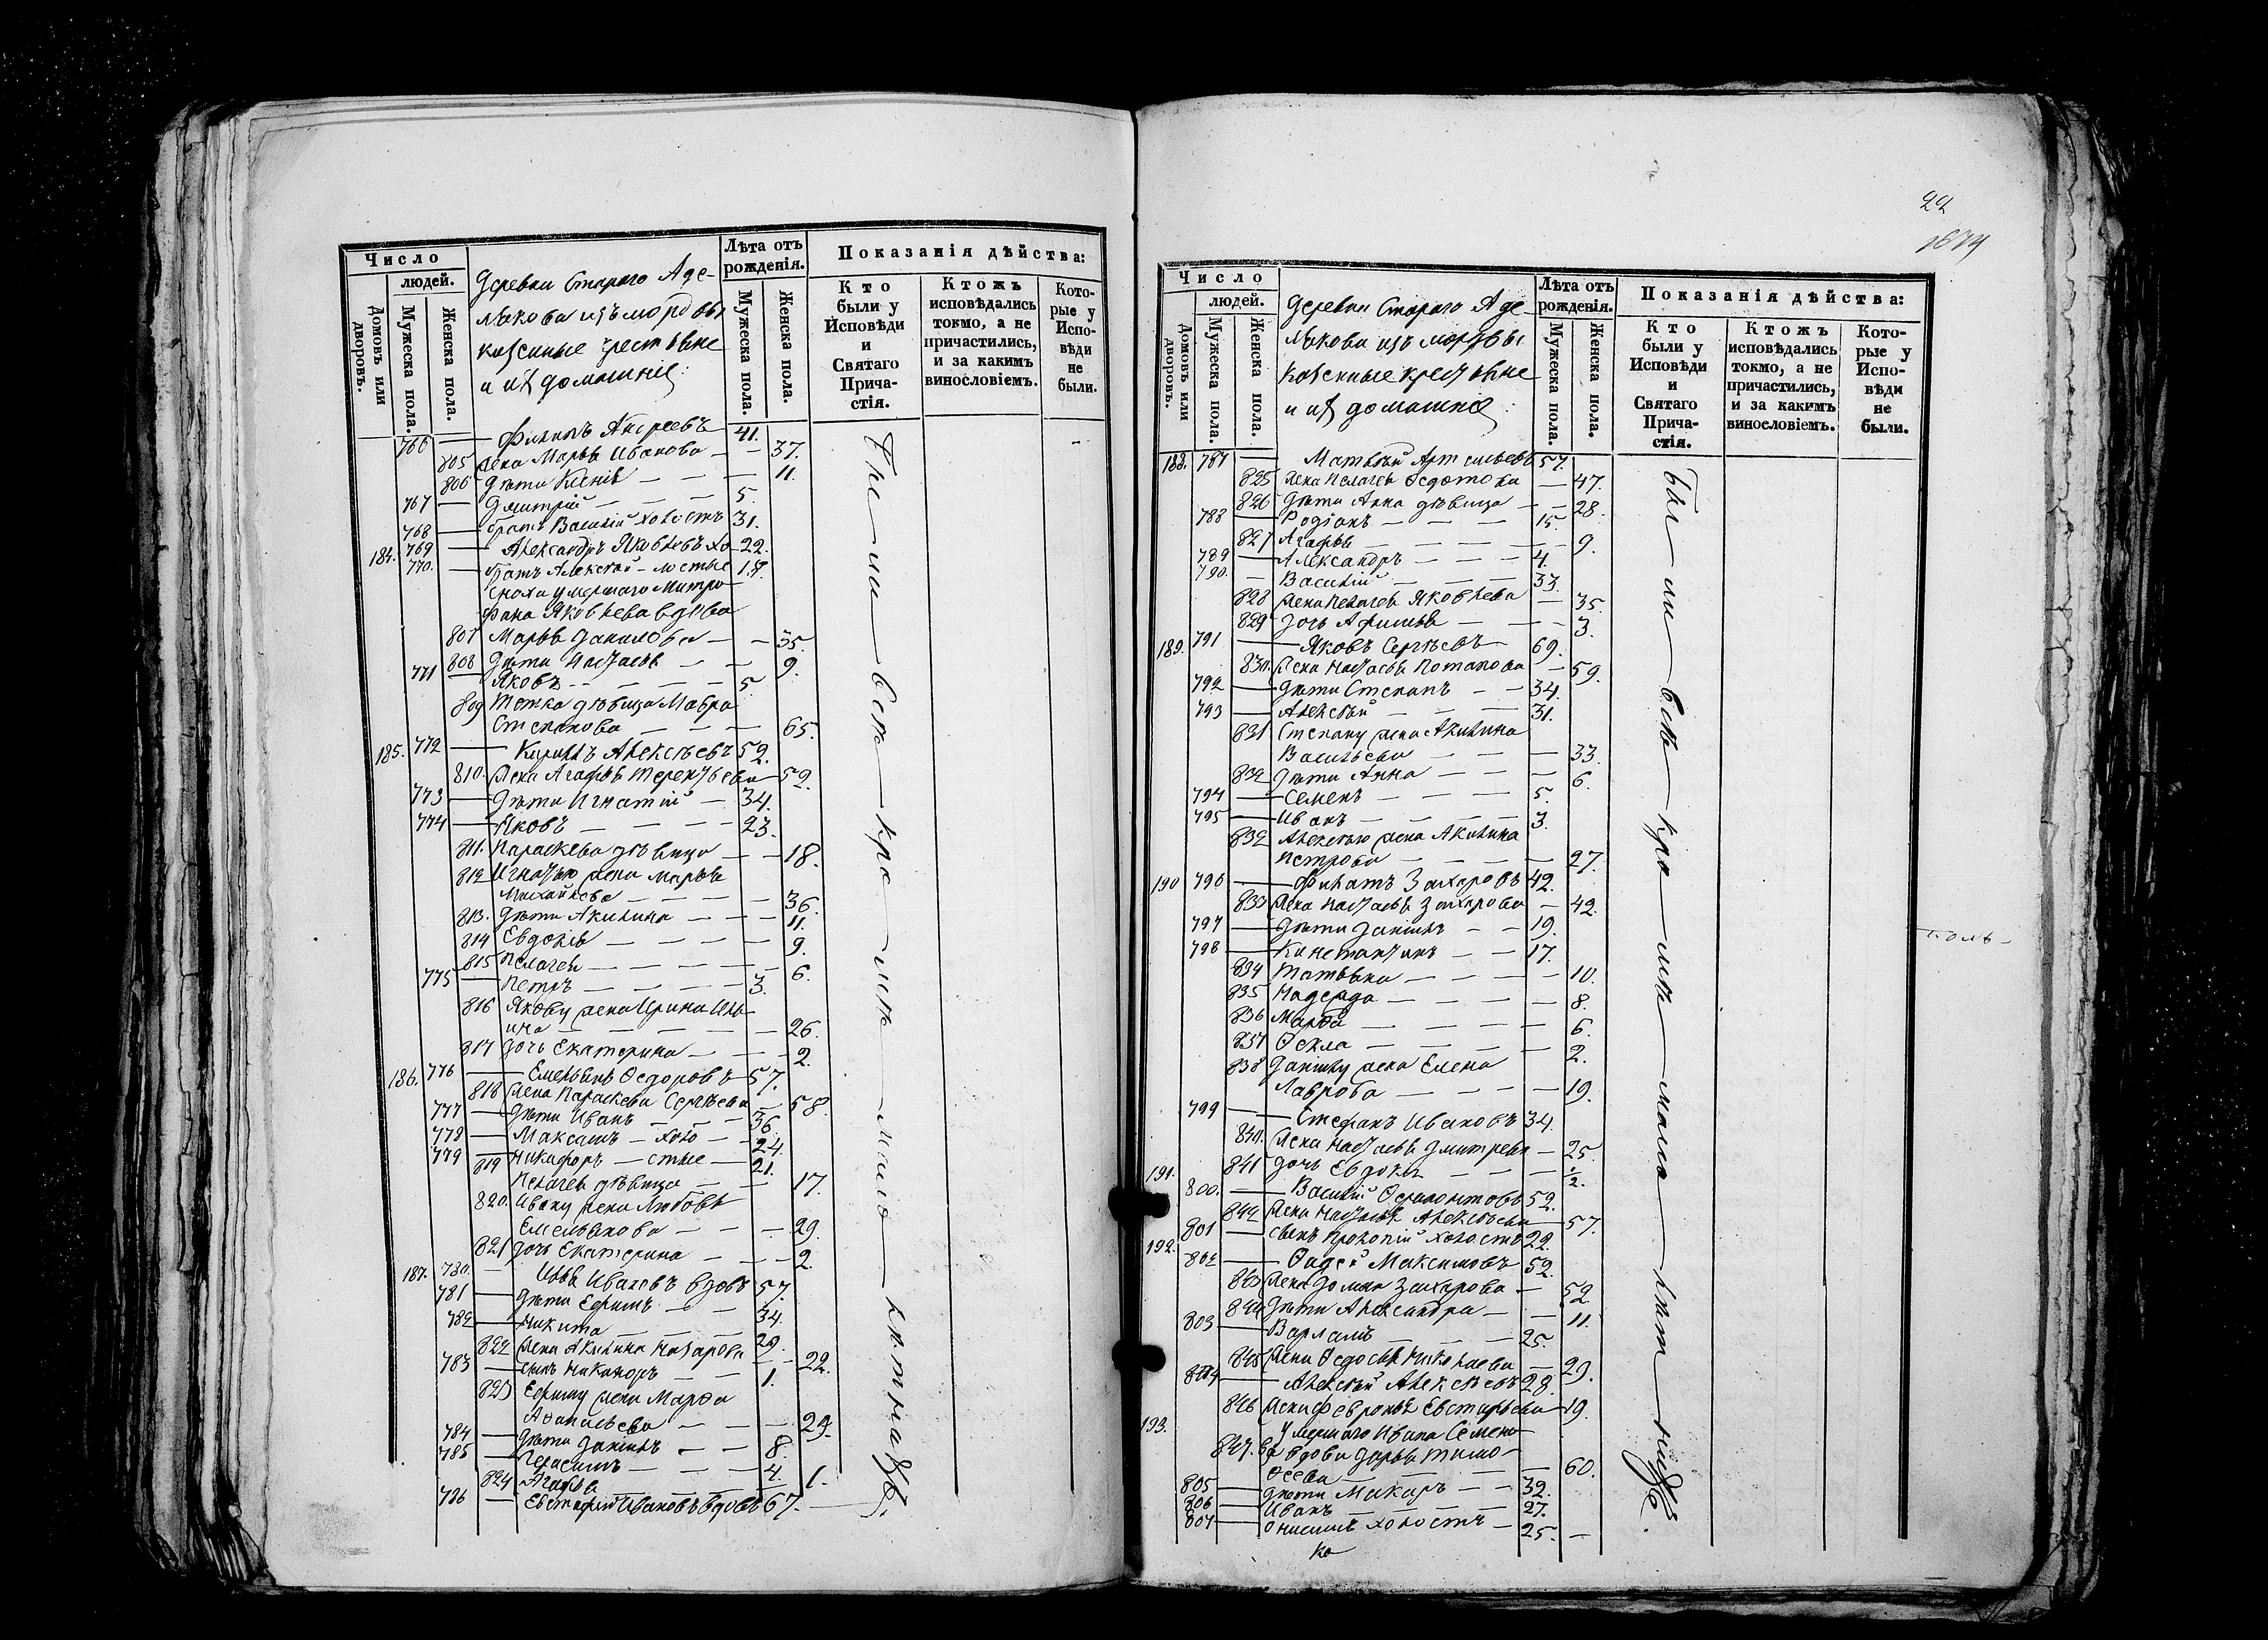 Число
людей.
Домовъ или дворовъ.
Мужеска пола.
Женска пола.
Деревни Стараго Аде-
лякова изъ мордвы
казенные крестьяне
и ихъ домашніе:
Лѣта отъ рожденія.
Мужеска пола.
Женска пола.
Показанія дѣйства:
Кто были у Исповѣди и Святаго Прича-стія.
Ктожъ исповѣдались токмо, а не причастились, и за какимъ винословіемъ.
Кото-рые у Испо-вѣди не были.
766 — Филипъ Андреевъ 41.
805 жена Марья Иванова — — 37.
806 Дѣти Ксенія — — — 11.
767 — Дмитрій — — — 5.
768 — братъ Василій холостъ 31.
184. 769 — Александръ Яковлевъ хо- 22.
770. — братъ Алексѣй - лостые 18.
Сноха умершаго Митро
фана Яковлева вдова
807 Марья Данилова — — 35.
808 Дѣти Настасья — — 9.
771 — Яковъ — — — — 5.
809 Тетка дѣвица Мавра
Степанова — — — 65.
185. 772 — Кирилъ Алексѣевъ 52.
810. жена Агафья Терентьева 52.
773 — Дѣти Игнатій — 34.
774 — Яковъ — — — — 23.
811. Параскева дѣвица — — 18.
812 Игнатью жена Марья
Михайлова — — — — 36.
813. Дѣти Акилина — — — 11.
814 Евдокія — — — — — 9.
815 Пелагея — — — — — 6.
775 — Петръ — — — — 3.
816 Якову жена Ирина Иль
ина — — — — — 26.
817 дочь Екатерина — — — 2.
186. 776 — Емельянъ Ѳедоровъ 57.
818 жена Параскева Сергѣева — 58.
777 — Дѣти Иванъ — — 36.
778 — Максимъ — холо — 24.
779 — Никифоръ — стые — 21.
819 Пелагея дѣвица — — 17.
820. Ивану жена Любовь
Емельянова — — — 29.
821 дочь Екатерина — — — 2.
187. 780. — Илья Ивановъ вдовъ 57.
781 — Дѣти Ефимъ — — 34.
782 — Никита — — — 29.
822 жена Акилина Назарова — — 22.
783 — сынъ Никаноръ — — 1.
823 Ефиму жена Марѳа
Аѳанасьева — — — 29.
784 — Дѣти Данилъ — — 8.
785 — Герасимъ — — — 4.
824 Агафья 1.
786 — Евстафій Ивановъ вдовъ 67.
22
Число
людей.
Домовъ или дворовъ.
Мужеска пола.
Женска пола.
Деревни Стараго Аде-
лякова изъ мордвы
казенные крестьяне
и ихъ домашніе:
Лѣта отъ рожденія.
Мужеска пола.
Женска пола.
Показанія дѣйства:
Кто были у Исповѣди и Святаго Прича-стія.
Ктожъ исповѣдались токмо, а не причастились, и за какимъ винословіемъ.
Кото-рые у Испо-вѣди не были.
188. 787 — Матвѣй Артемьевъ 57.
825 жена Пелагея Ѳедотова — 47.
826 Дѣти Анна дѣвица — — 28.
788 — Родіонъ — — — 15.
827 Агафья — — — — — 9.
789 — Александръ — — — 4.
790. — Василій — — — 33.
828 жена Пелагея Яковлева — 35.
829 дочь Афимья — — — 3.
189. 791 — Яковъ Сергѣевъ 69.
830. жена Настасья Потапова — 59.
792 — Дѣти Степанъ — — 34.
793 — Алексѣй — — — 31.
831 Степану жена Акилина
Васильева — — — — 33.
832 Дѣти Анна — — — 6.
794 — Семенъ — — — — 5.
795 — Иванъ — — — — 3.
832 Алексѣю жена Акилина
Петрова — — — — — 27.
190 796 — Филатъ Захаровъ 42.
833 жена Настасья Захарова — 42.
797 — Дѣти Данилъ — — 19.
798 — Константинъ — — 17.
834 Татьяна — — — — 10.
835 Надежда — — — — 8.
836 Марѳа — — — — 6.
837 Ѳекла — — — — 2.
838 Данилу жена Елена
Лаврова — — — 19.
799 — Стефанъ Ивановъ 34.
840. жена Настасья Дмитрева — 25.
841 дочь Евдокія — — — ½.
191. 800. — Василій Ѳерапонтовъ 52.
842 жена Настасья Алексѣева — 57.
801 — сынъ Прокопій холостъ 22.
192. 802 — Ѳадей Максимовъ 52.
843 жена Домна Захарова — 52
844 Дѣти Александра — — 11.
803 — Варламъ — — — 25.
845 жена Ѳедосья Николаева — 29.
804 — Алексѣй Алексѣевъ 28.
846 жена Февронья Евстафьева 19.
193. Умершаго Ивана Семено
847. ва вдова Дарья Тимо-
ѳеева — — — — — 60.
805 — Дѣти Макаръ — — 32.
806 — Иванъ — — — — 27.
807 — Онисимъ холостъ — 25.
ко